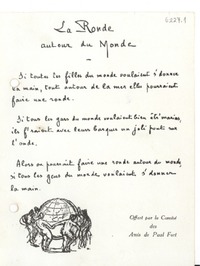 6229.1
La Ronde
autour du Monde
Si toutes les filles du monde voulaient s'donner
la main, tout autour de la mer elles pourraient
faire une ronde.
Si tous les gars du monde voulaient bien êtr' marins,
ils f'raient avec leurs barques un joli pont sur
l'onde.
Alors on pourrait faire une ronde autour du monde,
si tous les gens du monde voulaient s'donner
la main.
Offert par le Comité
des
Amis de Paul Fort